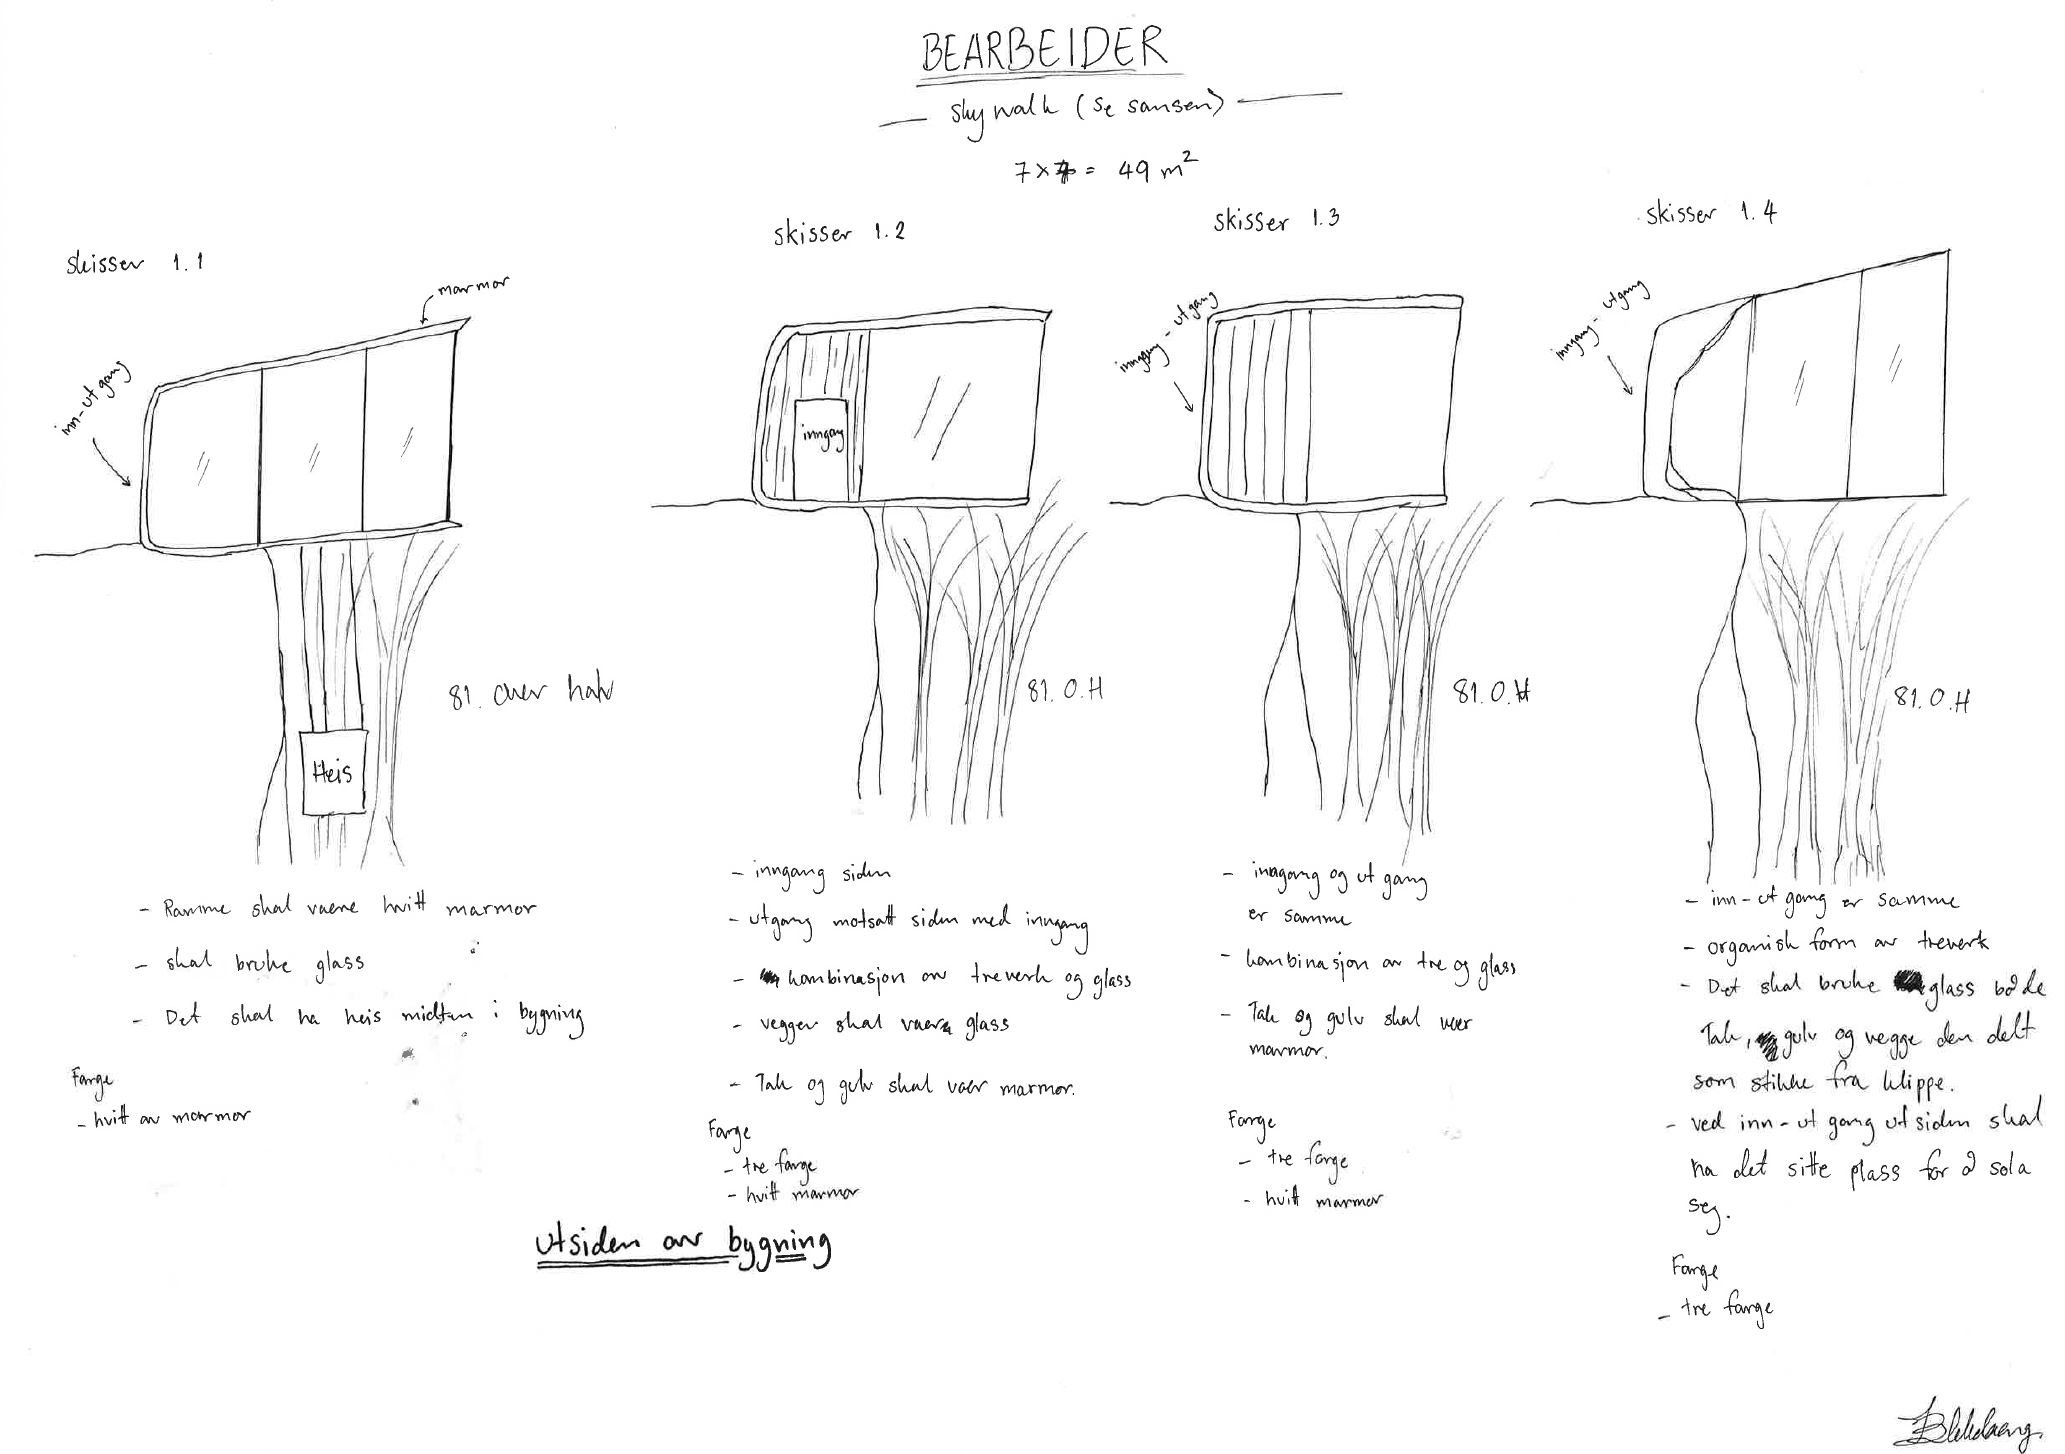 BEARBEIDER
skywalk (se sansen)
7x7 = 49 m²
skisser 1.1
marmor
inn-utgang
Heis
81. over hav
- Ramme skal vaere hvitt marmor
- skal bruke glass
- Det skal ha heis midten i bygning
Farge
- hvitt av marmor
skisser 1.2
inngang
81. O.H
- inngang siden
- utgang motsatt siden med inngang
- kombinasjon av treverk og glass
- vegger skal vaere glass
- Tak og gulv skal vaer marmor.
Farge
- tre farge
- hvitt marmor
skisser 1.3
inngang-utgang
81. O.H
- inngang og ut gang
er samme
- kombinasjon av tre og glass
- Tak og gulv skal vaer
marmor.
Farge
- tre farge
- hvitt marmor
skisser 1.4
inngang-utgang
81. O.H
- inn-ut gang er samme
- organisk form av treverk
- Det skal bruke glass både
Tak, gulv og vegge den delt
som stikke fra klippe.
- ved inn-ut gang utsiden skal
ha det sitte plass for å sola
seg.
Farge
- tre farge
utsiden av bygning